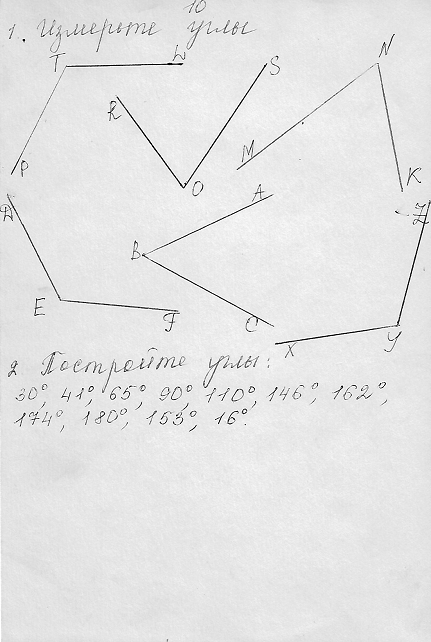 10
1. Измерьте углы
T L S N
R
M
P O K
D A Z
B
E F C
X Y
2 Постройте углы:
30°, 41°, 65°, 90°, 110°, 146°, 162°,
174°, 180°, 153°, 16°.